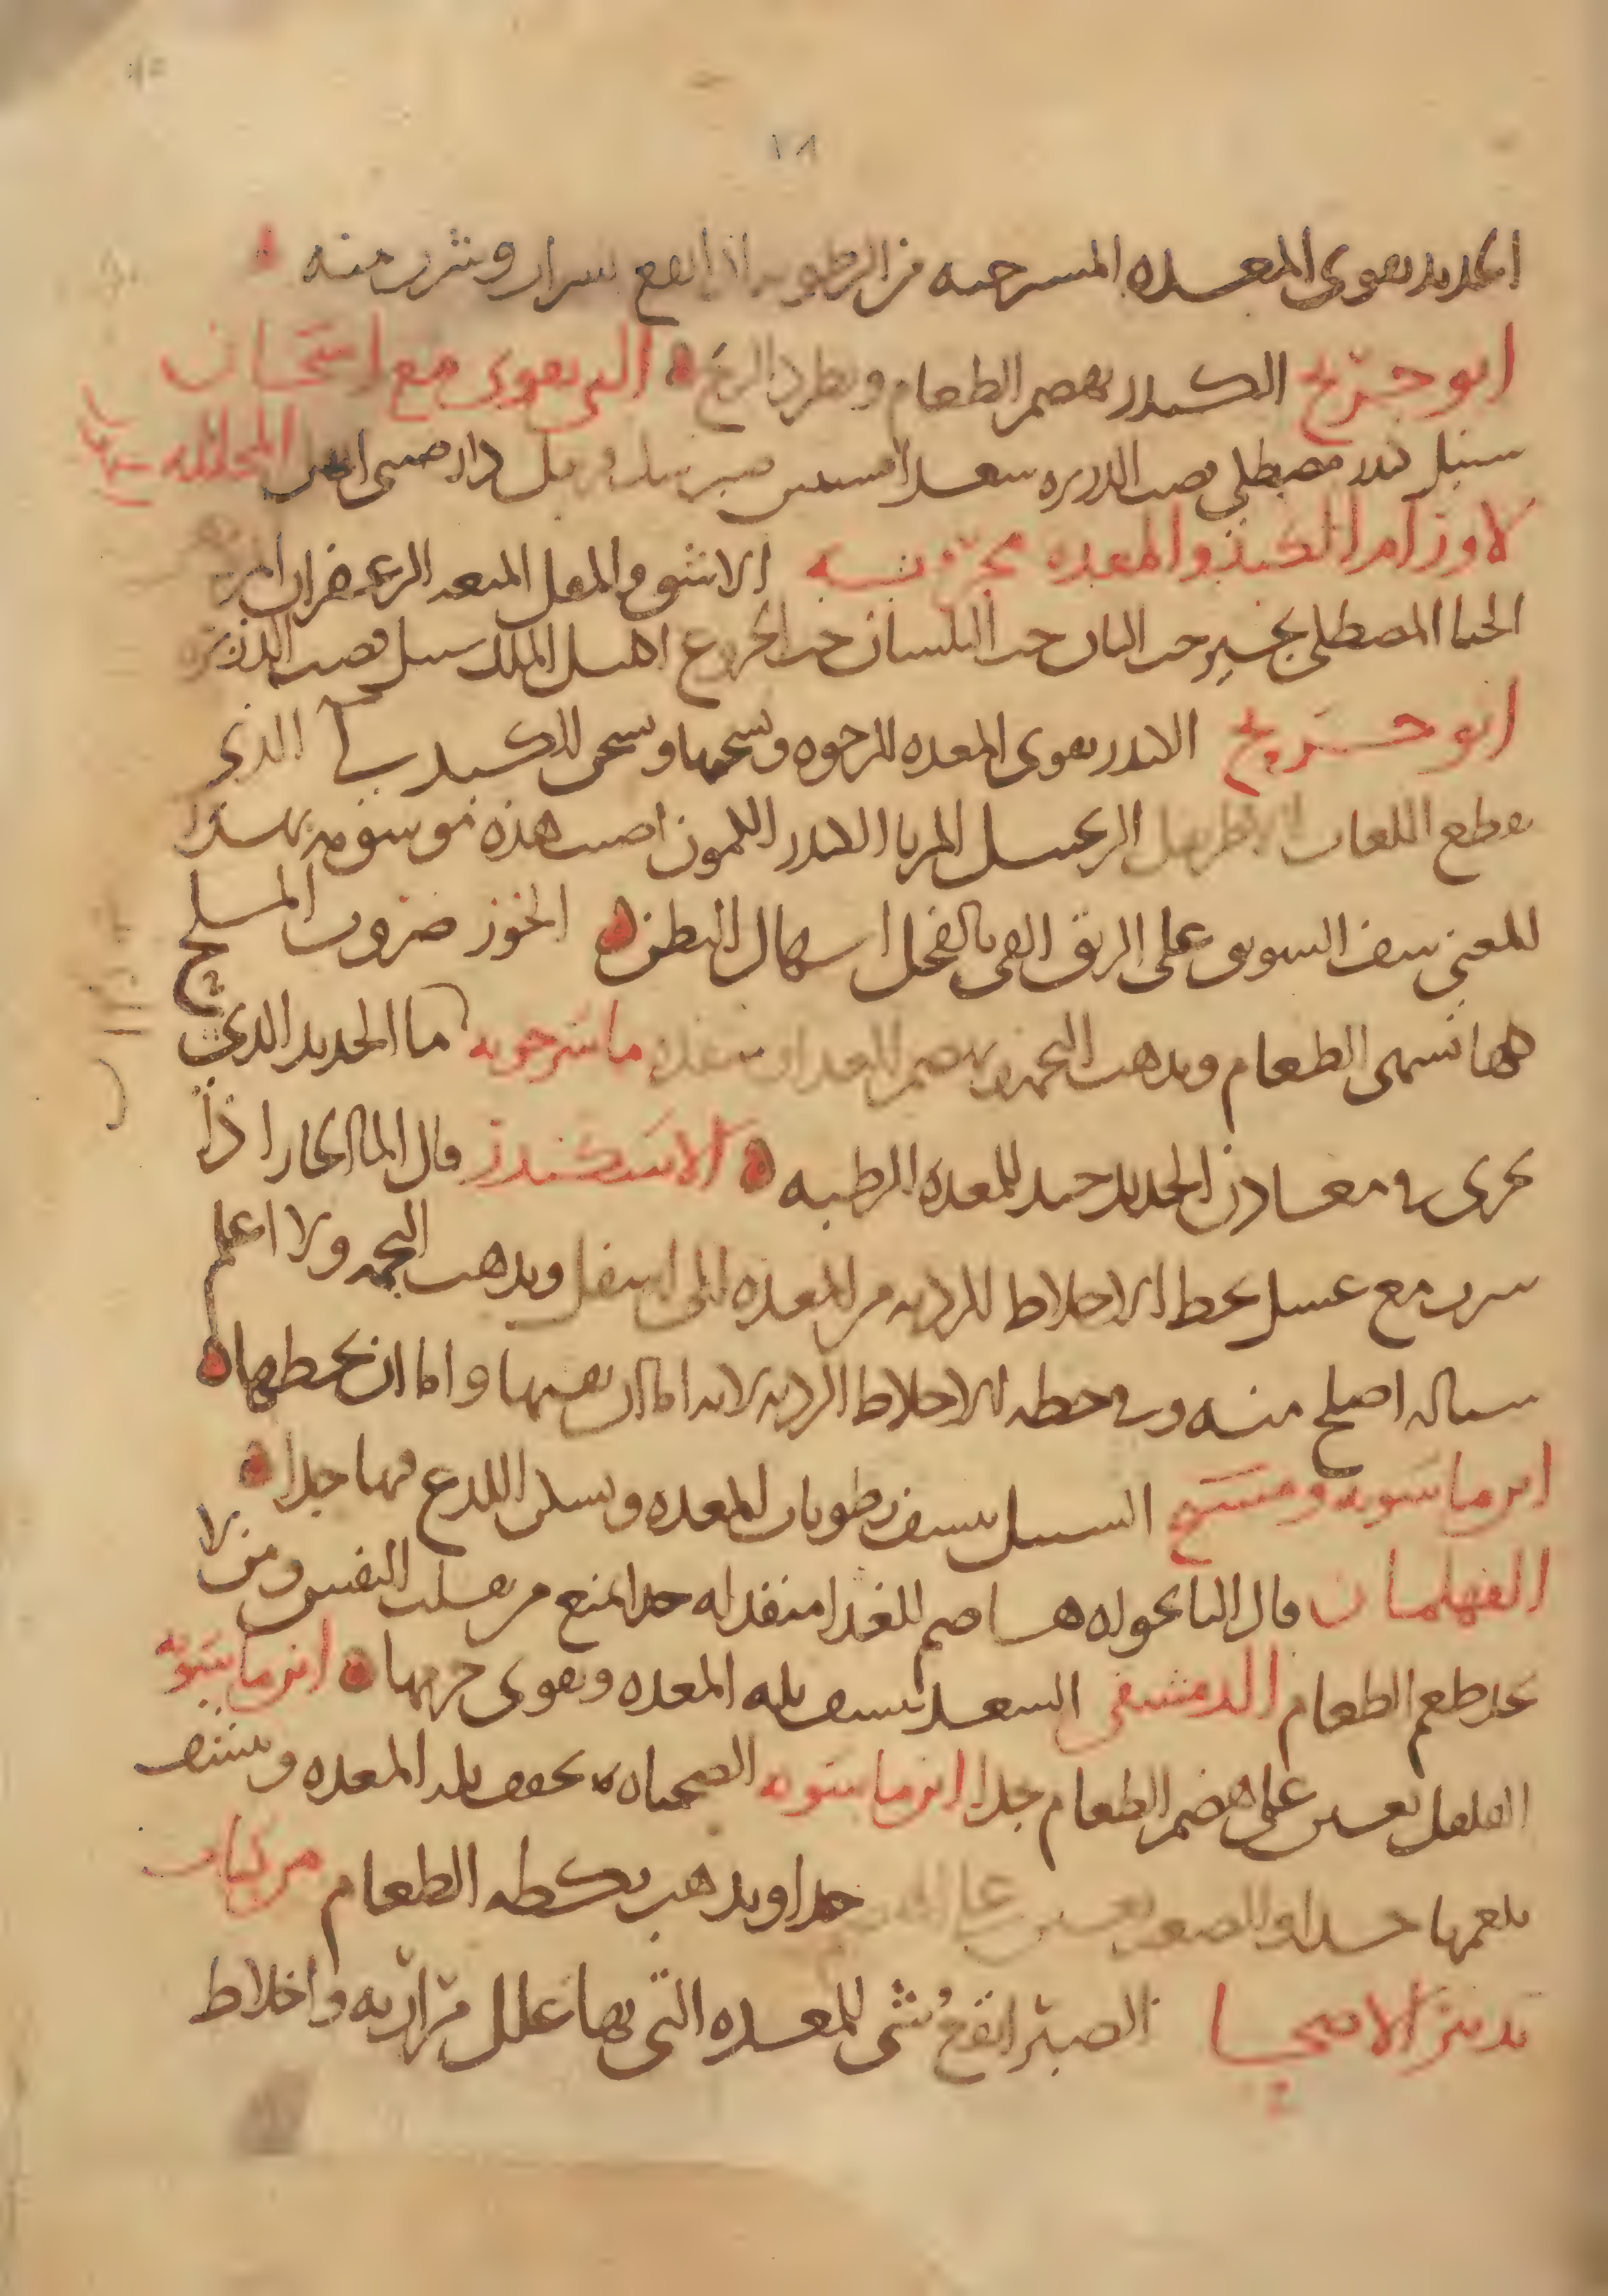 ١٨
الحديد يقوي المعده المسترخيه من الرطوبه اذا انقع بشراب وشرب منه
ابو جريج الكندر يهضم الطعام ويطرد الريح التي تقوي مع اسخان
سنبل كندر مصطكى قصب الذريره سعد افسنتين صبر دار صيني المحلله
لاورام الكبد والمعده مجربه الاشق والمقل الميعه الزعفران
الحنا المصطكى حب البان حب البلسان حب الخروع اكليل الملك سنبل قصب الذريره
ابو جريج الكندر يقوي المعده الرخوه ويسخنها ويسخن الكبد الذي
يقطع اللعاب الاطريفل الزنجبيل المربا الكندر الكمون اصبت هذه
للمعنى سف السويق على الريق القي بالفجل اسهال البطن الخوز ضروب الملح
كلها تشهي الطعام ويذهب التخمه يهضم ماسرجويه ما الحديد الذي
يجري في معادن الحديد جيد للمعده الرطبه الاسكندر قال الما الحار اذا
شرب مع عسل يحط الاخلاط الرديه من المعده الى اسفل ويذهب التخمه ولا اعلم
شياله اصلح منه وفي حطه الاخلاط الرديه لانه اما ان يقيها واما ان يحطها
ابن ماسويه ومسيح السنبل ينشف رطوبات المعده ويسكن اللذع فيها جدا
الفهلمان قال النانخواه هاضم للغذا منفذ له جدا يمنع من تقلب النفس ومن لا
يجد طعم الطعام الدمشقي السعد ينشف بله المعده ويقوي جرمها ابن ماسويه
الفلفل يعين على هضم الطعام جدا ابن ماسويه الصحناه يجفف بله المعده وينشف
بلغمها جدا والصعتر يعين على الهضم جدا ويذهب بكظه الطعام من كتاب
تدبير الاصحا الصبر انفع شي للمعده التي بها علل مراريه واخلاط